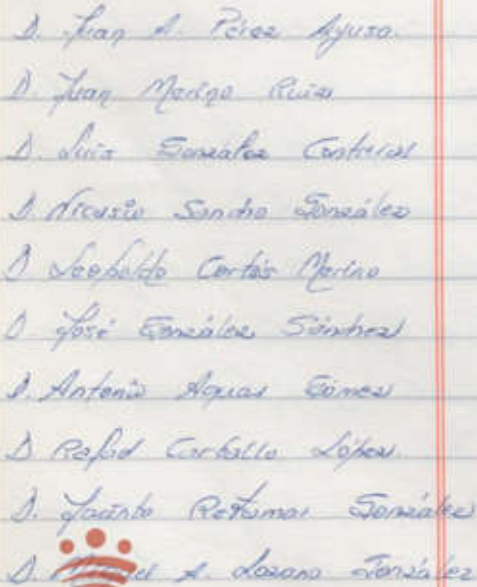 D. Juan A. Pérez Ayuso.
D. Juan Merino Ruiz
D. Luis González Contreras
D. Nicasio Sancho González
D. Leopoldo Cortés Merino
D. José González Sánchez
D. Antonio Aguas Gómez
D. Rafael Carballo López.
D. Jacinto Retamar González
D. A. Lozano González